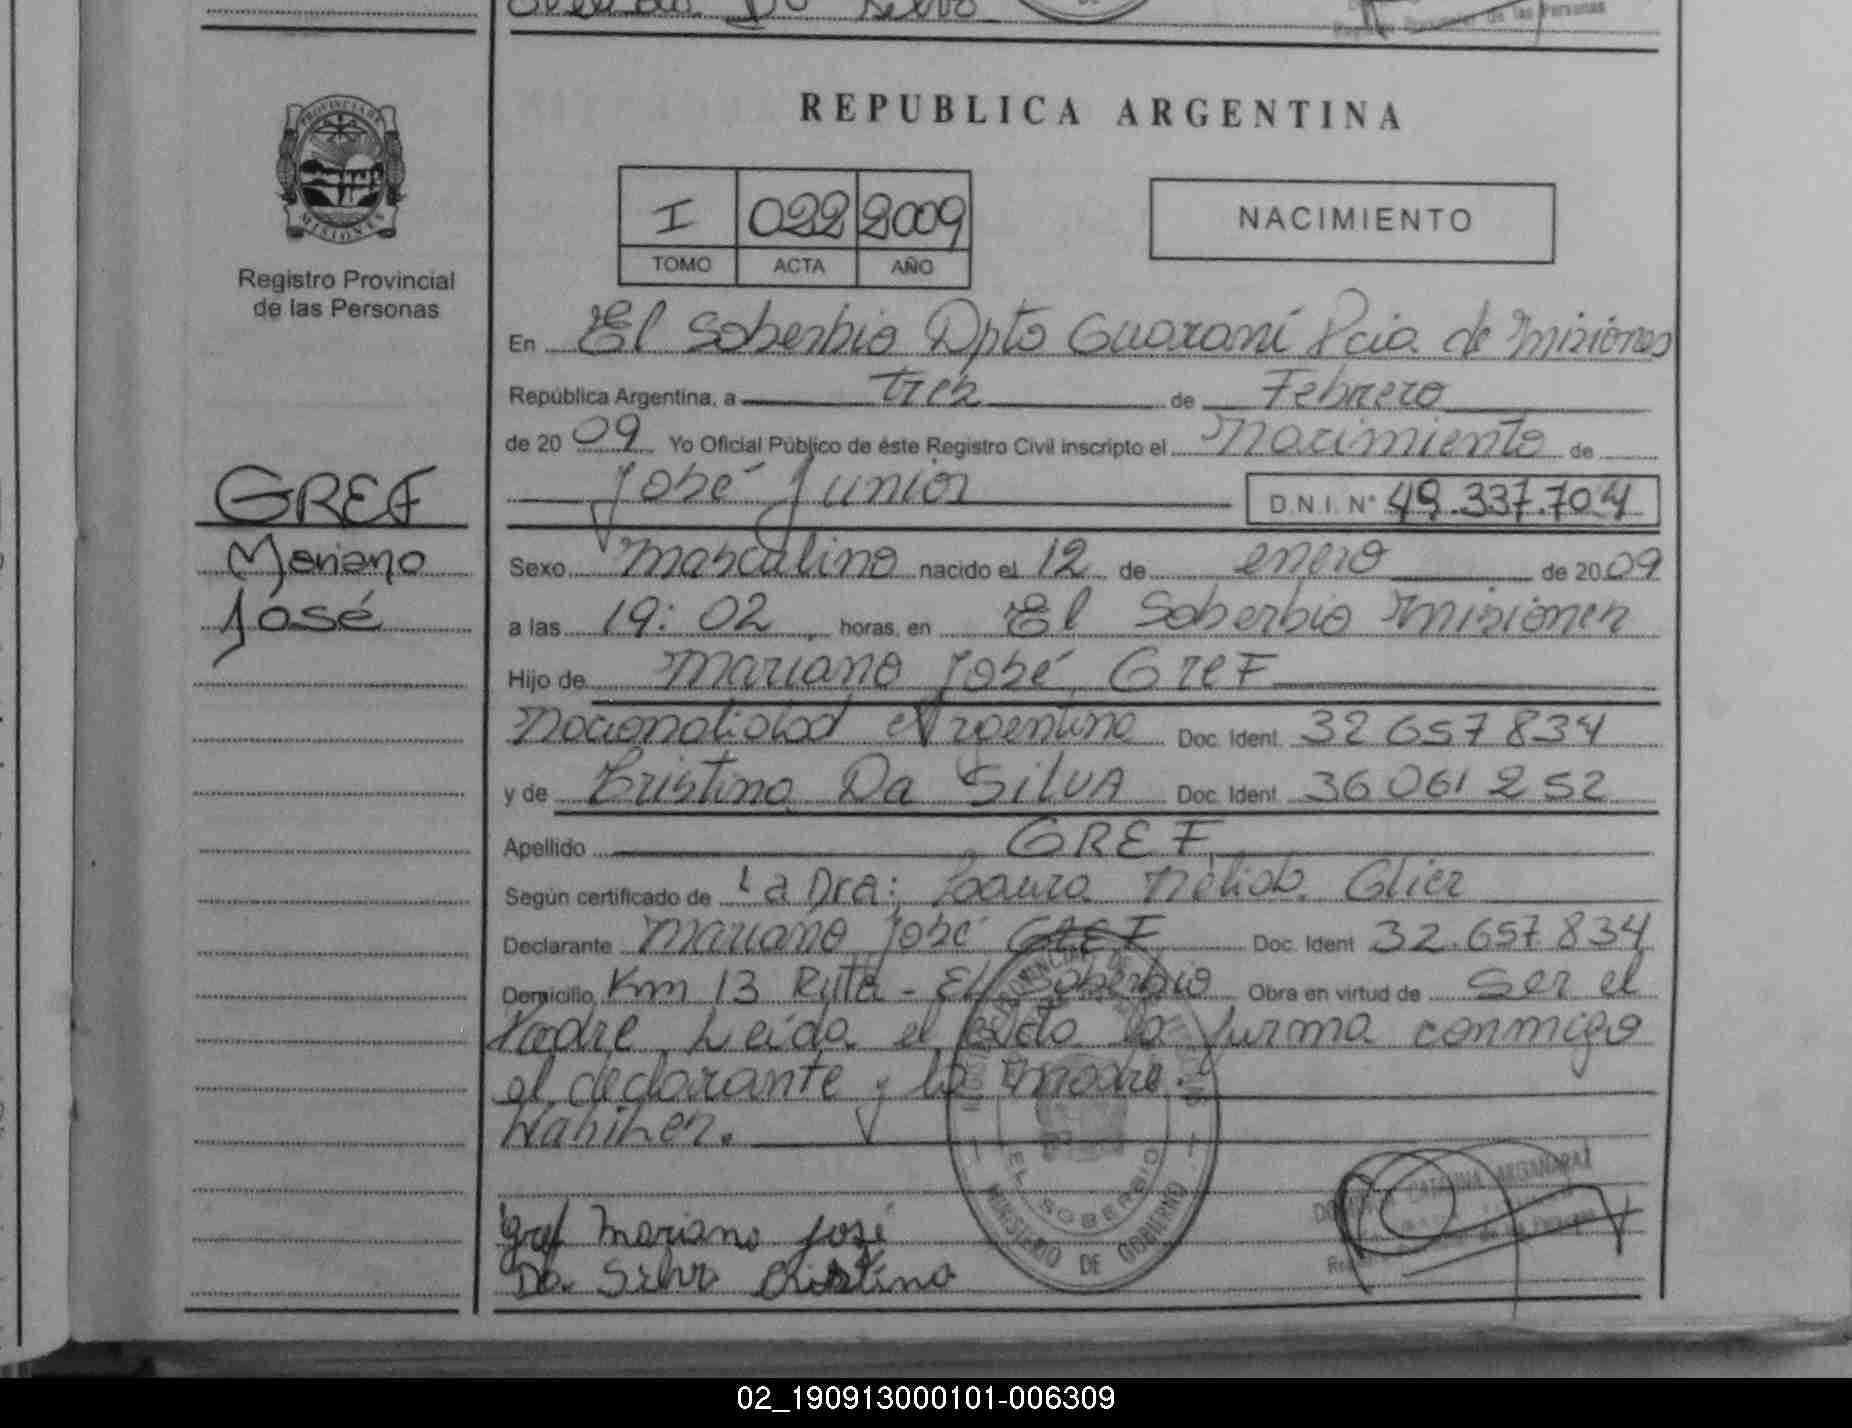 REPUBLICA ARGENTINA
PROVINCIA DE
MISIONES
Registro Provincial
de las Personas
I 022 2009
TOMO ACTA AÑO
NACIMIENTO
En El Soberbio Dpto Guaraní Pcia. de Misiones
República Argentina, a tres de Febrero
de 2009 Yo Oficial Público de éste Registro Civil inscripto el Nacimiento de
José Junior D.N.I. Nº 49.337.704
GREF
Mariano
José
Sexo Masculino nacido el 12 de enero de 2009
a las 19:02 horas, en El Soberbio Misiones
Hijo de Mariano José GreF
Nacionalidad Argentino Doc. Ident. 32 657 834
y de Cristina Da SilVA Doc. Ident. 36 061 252
Apellido GREF
Según certificado de La Dra: Laura Nélida Glier
Declarante Mariano José GREF Doc. Ident 32.657 834
Domicilio Km 13 Ruta - El Soberbio Obra en virtud de Ser el
Padre Leída el acta la firma conmigo
el declarante y la madre.
MINISTERIO DE GOBIERNO
EL SOBERBIO
Gref Mariano José
Da Silva Cristina
02_190913000101-006309